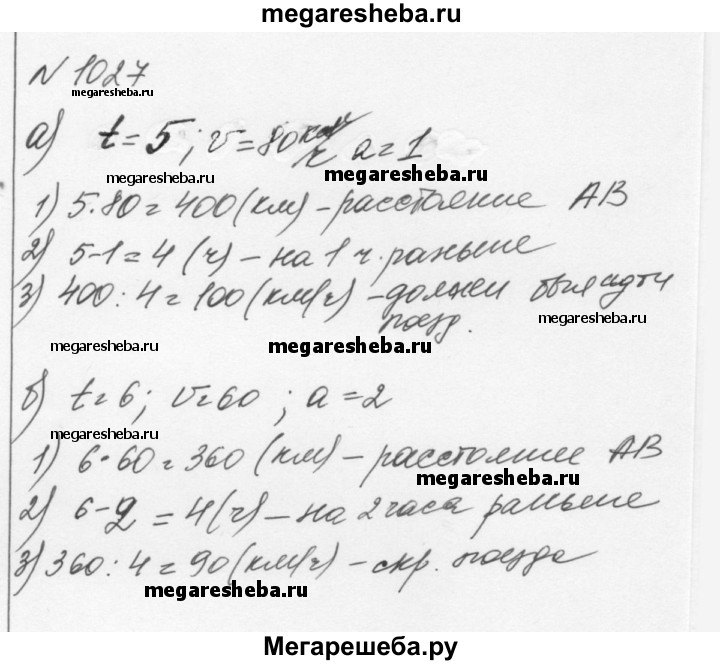 megaresheba.ru
N 1027
megaresheba.ru
а) t=5; v=80 км/ч a=1
megaresheba.ru megaresheba.ru
1) 5·80=400(км) – расстояние АВ
2) 5-1=4 (ч) – на 1 ч. раньше
3) 400:4=100(км/ч) – должен был идти
поезд.
megaresheba.ru
megaresheba.ru megaresheba.ru
б) t=6; v=60 ; a=2
megaresheba.ru
1) 6·60=360 (км) – расстояние АВ
megaresheba.ru
2) 6-2=4(ч) – на 2 часа раньше
3) 360:4=90(км/ч) – скр. поезда
megaresheba.ru
Мегарешеба.ру